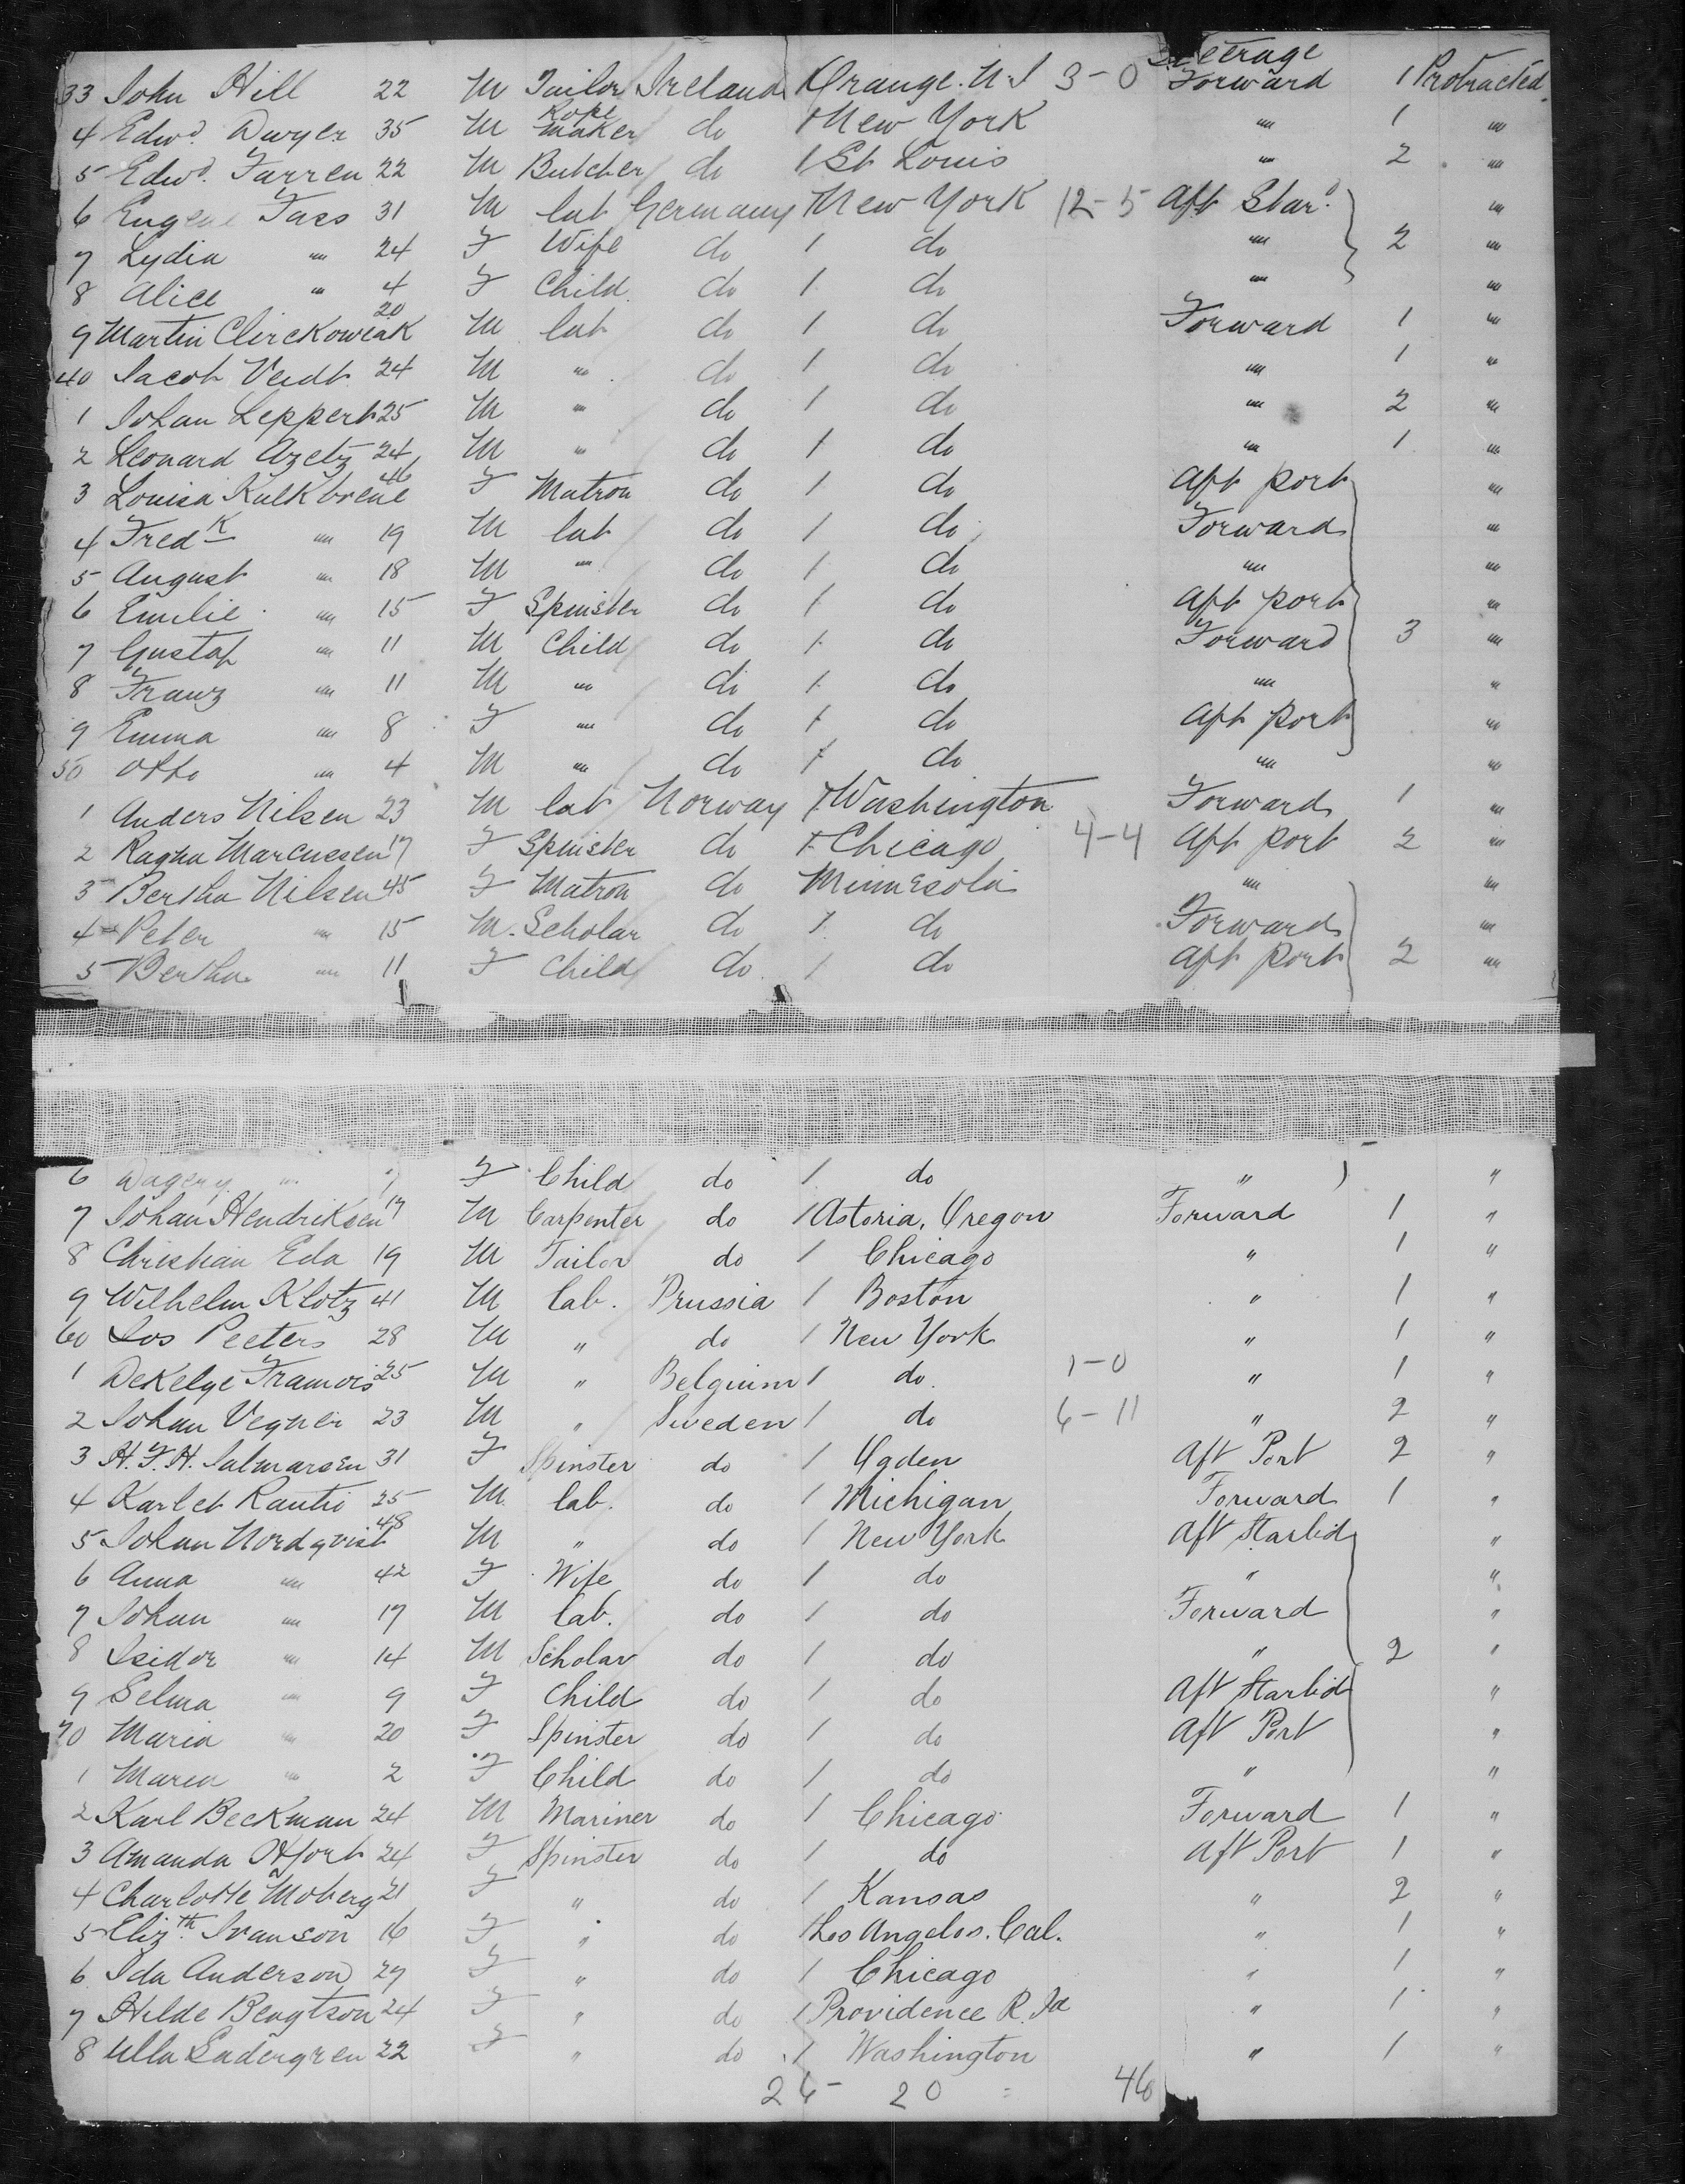 Steerage
33 John Hill 22 M Tailor Ireland Orange. N.J 3-0 Forward 1 Protracted
4 Edwd. Dwyer 35 M Rope maker do 1 New York " 1 "
5 Edwd. Farren 22 M Butcher do 1 St Louis " 2 "
6 Eugene Fass 31 M lab Germany New York 12-5 Aft Stard. "
7 Lydia " 24 F Wife do 1 do " 2 "
8 Alice " 4 F Child do 1 do " "
9 Martin Clirckowiak 20 M lab do 1 do Forward 1 "
40 Jacob Veidt 24 M " do 1 do " 1 "
1 Johan Leppert 25 M " do 1 do " 2 "
2 Leonard Azetz 24 M " do 1 do " 1 "
3 Louisa Kulkbrene 46 F Matron do 1 do Aft port "
4 Fredk " 19 M lab do 1 do Forward "
5 August " 18 M " do 1 do " "
6 Emilie " 15 F Spinster do 1 do Aft port "
7 Gustaf " 11 M Child do 1 do Forward 3 "
8 Franz " 11 M " do 1 do " "
9 Emma " 8 F " do 1 do Aft port "
50 Otto " 4 M " do 1 do " "
1 Anders Nilsen 23 M lab Norway 1 Washington Forward 1 "
2 Ragna Marcussen 17 F Spinster do 1 Chicago 4-4 Aft port 2 "
3 Bertha Nilsen 45 F Matron do Minnesota " "
4 Peter " 15 M. Scholar do 1 do Forward "
5 Bertha " 11 F Child do 1 do Aft port 2 "
6 Dagny " 7 F Child do 1 do " "
7 Johan Hendriksen 17 M Carpenter do 1 Astoria, Oregon Forward 1 "
8 Christian Eda 19 M Tailor do 1 Chicago " 1 "
9 Wilhelm Klotz 41 M lab. Prussia 1 Boston " 1 "
60 Jos Peeters 28 M " do 1 New York " 1 "
1 DeKelge Framois 25 M " Belgium 1 do 1-0 " 1 "
2 Johan Vegner 23 M " Sweden 1 do 6-11 " 2 "
3 H. F. H. Salmarsen 31 F Spinster do 1 Ogden Aft Port 2 "
4 Karl et Rautio 25 M lab. do 1 Michigan Forward 1 "
5 Johan Nordqvist 48 M " do 1 New York Aft Starbd "
6 Anna " 42 F Wife do 1 do " "
7 Johan " 17 M lab. do 1 do Forward "
8 Isidor " 14 M Scholar do 1 do " 2 "
9 Selma " 9 F Child do 1 do Aft Starbd "
70 Maria " 20 F Spinster do 1 do Aft Port "
1 Maria " 2 F Child do 1 do " "
2 Karl Beckman 24 M Mariner do 1 Chicago Forward 1 "
3 Amanda Hjort 24 F Spinster do 1 do Aft Port 1 "
4 Charlotte Moberg 21 F " do 1 Kansas " 2 "
5 Elizth. Ivanson 16 F " do 1 Los Angelos. Cal. " 1 "
6 Ida Anderson 27 F " do 1 Chicago " 1 "
7 Hilde Bengtson 24 F " do 1 Providence R. Id " 1 "
8 Ulla Sadergren 22 F " do 1 Washington " 1 "
26 - 20 = 46